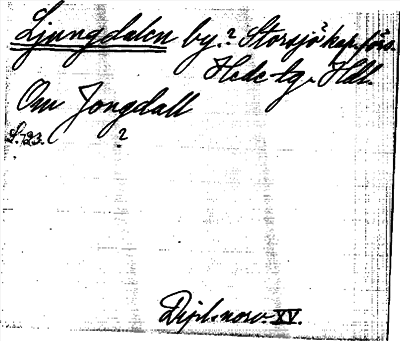 Ljungdalen by.? Storsjö kap.förs.
Hede tg. Hdl.
Om Jongdall
S. 123. ?
Dipl. norv. XV.